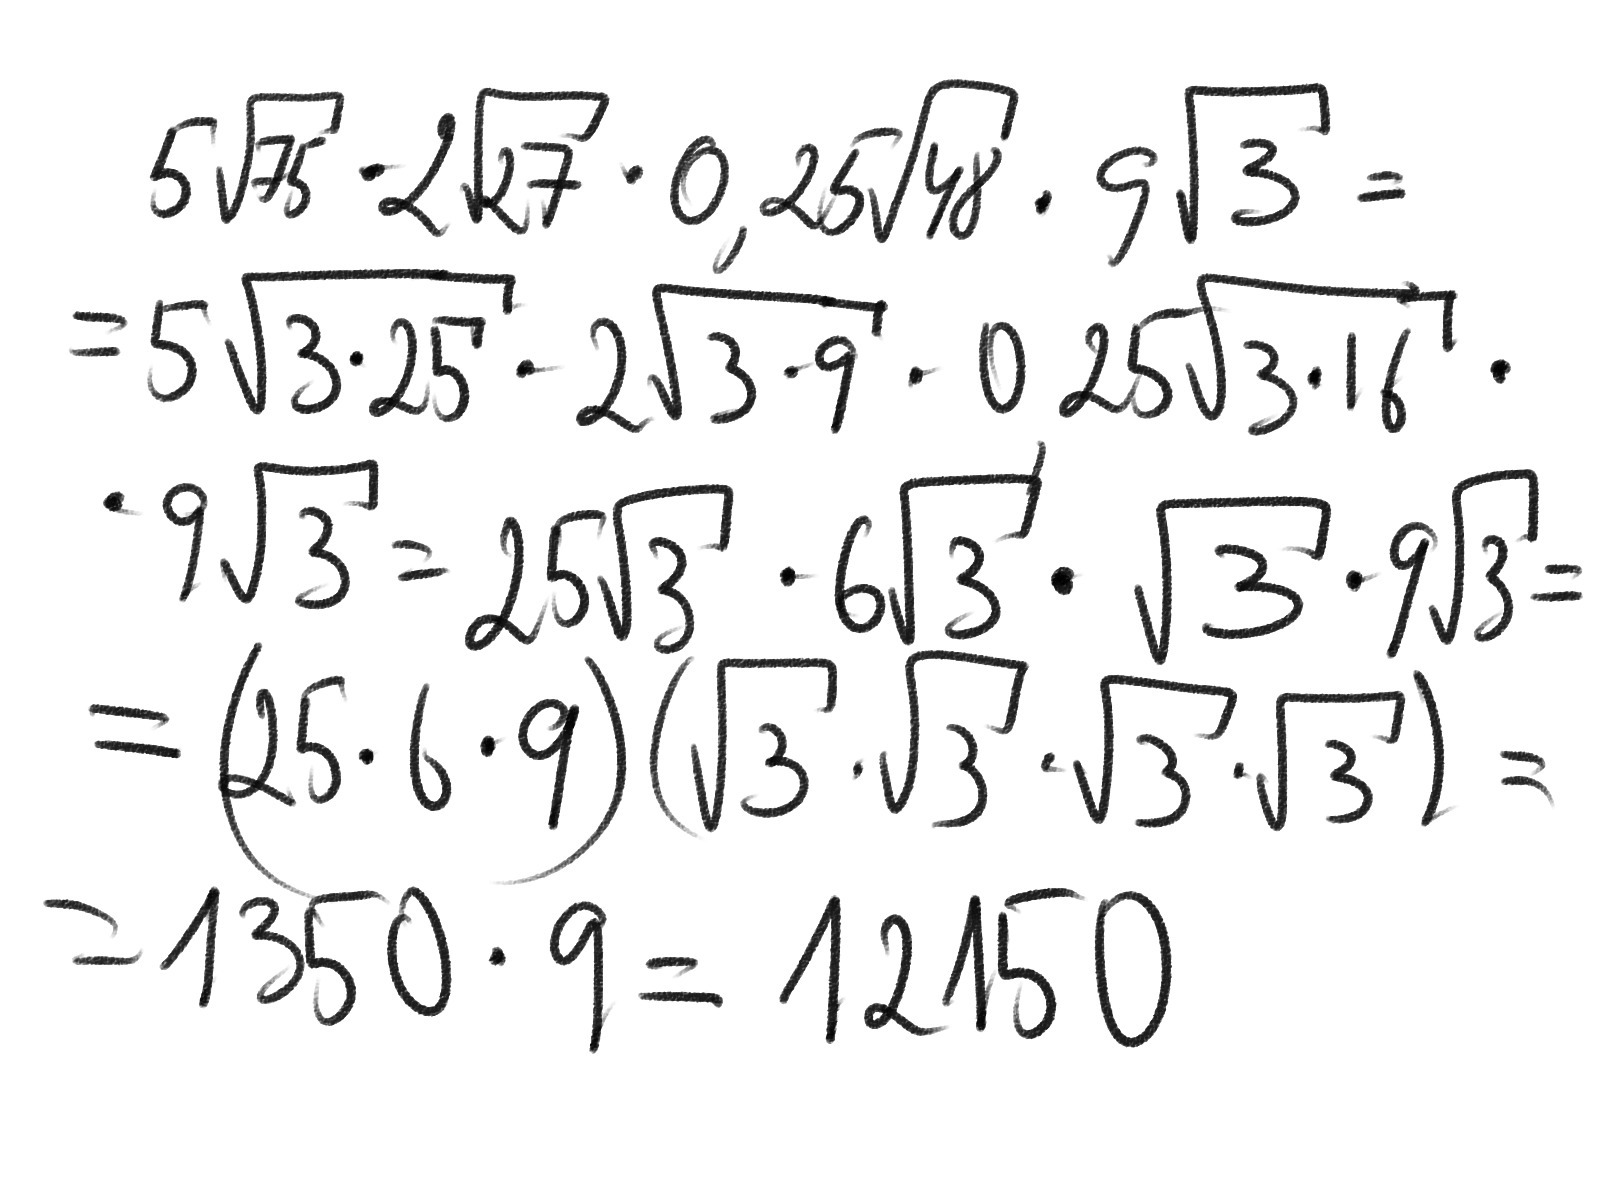 5√75 · 2√27 · 0,25√48 · 9√3 =
= 5√3·25 · 2√3·9 · 0 25√3·16 ·
· 9√3 = 25√3 · 6√3 · √3 · 9√3 =
= (25·6·9)(√3·√3·√3·√3) =
= 1350 · 9 = 12150